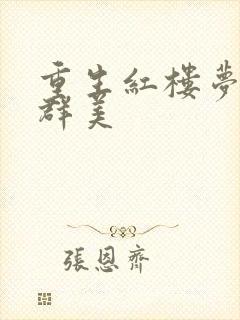 重生紅樓夢
群美
張恩齊